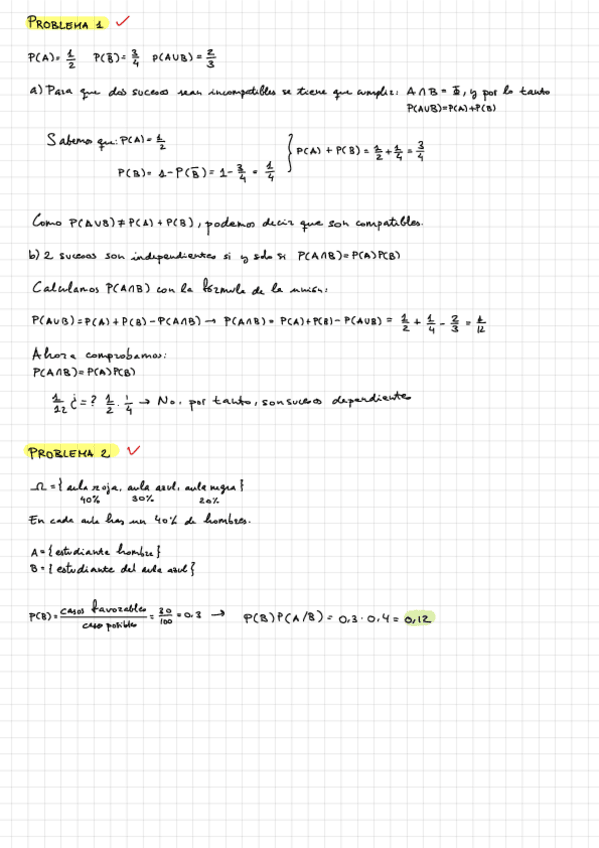 PROBLEMA 1
P(A)= 1/2 P(B̅)= 3/4 P(A∪B)= 2/3
a) Para que dos sucesos sean incompatibles se tiene que cumplir: A∩B = Φ, y por lo tanto
P(A∪B)=P(A)+P(B)
Sabemos que: P(A)= 1/2
P(A) + P(B) = 1/2 + 1/4 = 3/4
P(B)= 1-P(B̅)= 1- 3/4 = 1/4
Como P(A∪B) ≠ P(A) + P(B), podemos decir que son compatibles.
b) 2 sucesos son independientes si y solo si P(A∩B)=P(A)P(B)
Calculamos P(A∩B) con la fórmula de la unión:
P(A∪B)=P(A)+P(B)-P(A∩B) → P(A∩B)= P(A)+P(B)-P(A∪B) = 1/2 + 1/4 - 2/3 = 1/12
Ahora comprobamos:
P(A∩B)=P(A)P(B)
1/12 ¿=? 1/2 · 1/4 → No, por tanto, son sucesos dependientes
PROBLEMA 2
Ω={aula roja, aula azul, aula negra}
40% 30% 20%
En cada aula hay un 40% de hombres.
A={estudiante hombre}
B={estudiante del aula azul}
P(B)= casos favorables/caso posibles = 30/100 =0,3 → P(B)P(A/B)= 0,3·0,4= 0,12